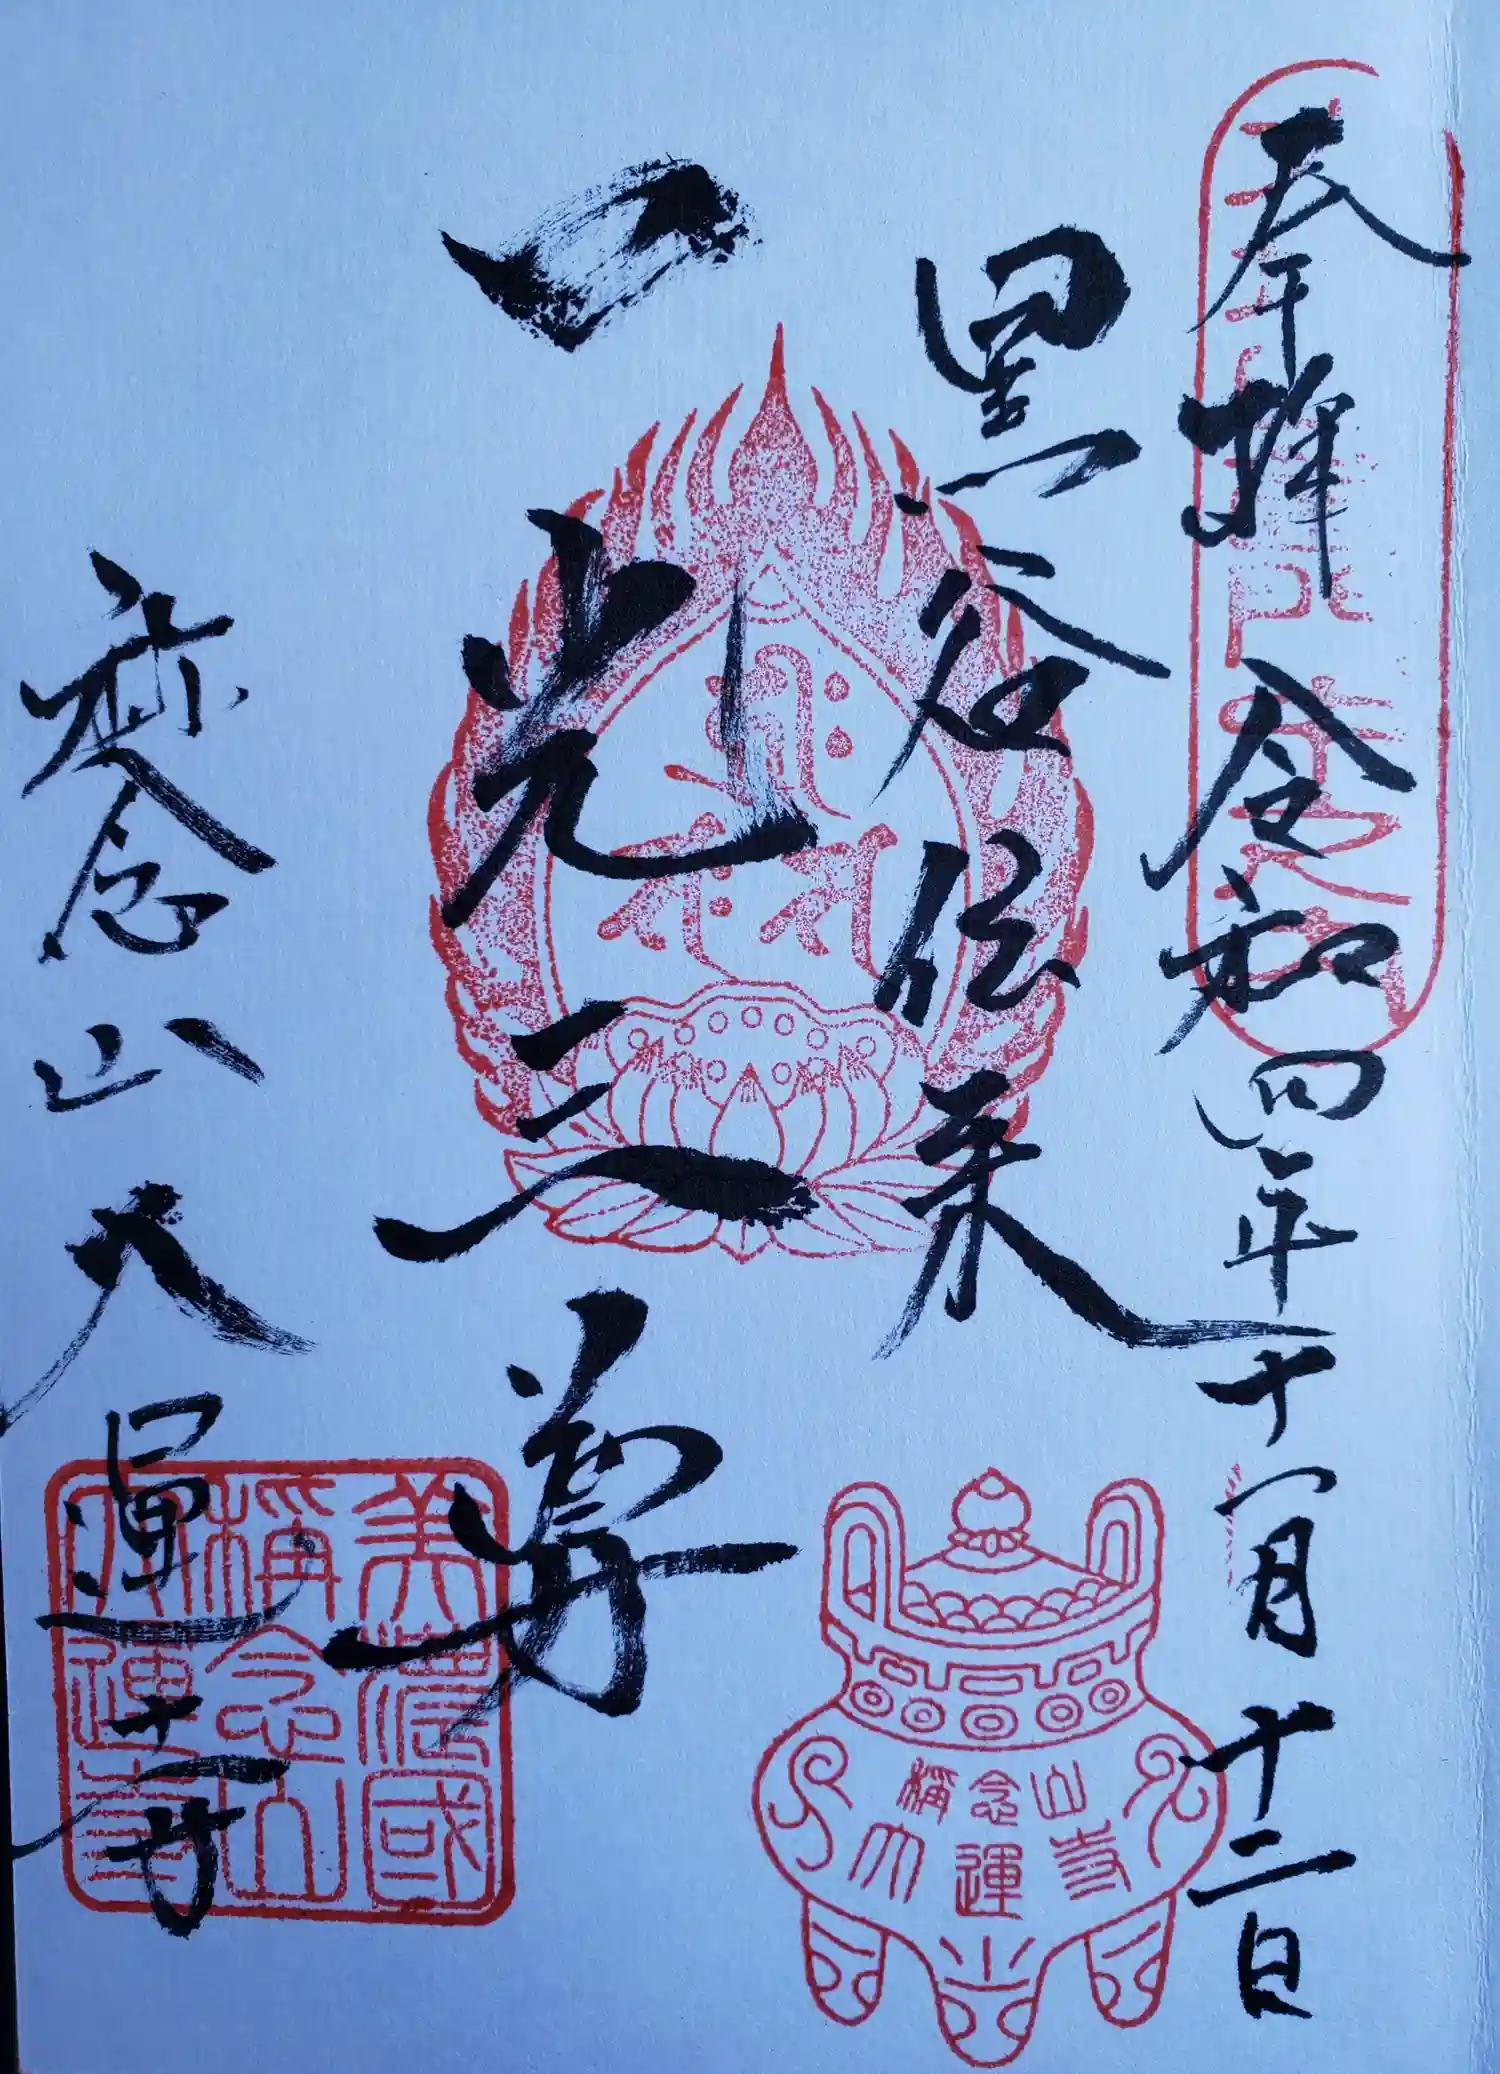 奉拝 令和四年十一月十二日
黒谷伝来
一光三尊
称念山大運寺
美濃國
稱念山
大運寺
稱念山
大運寺